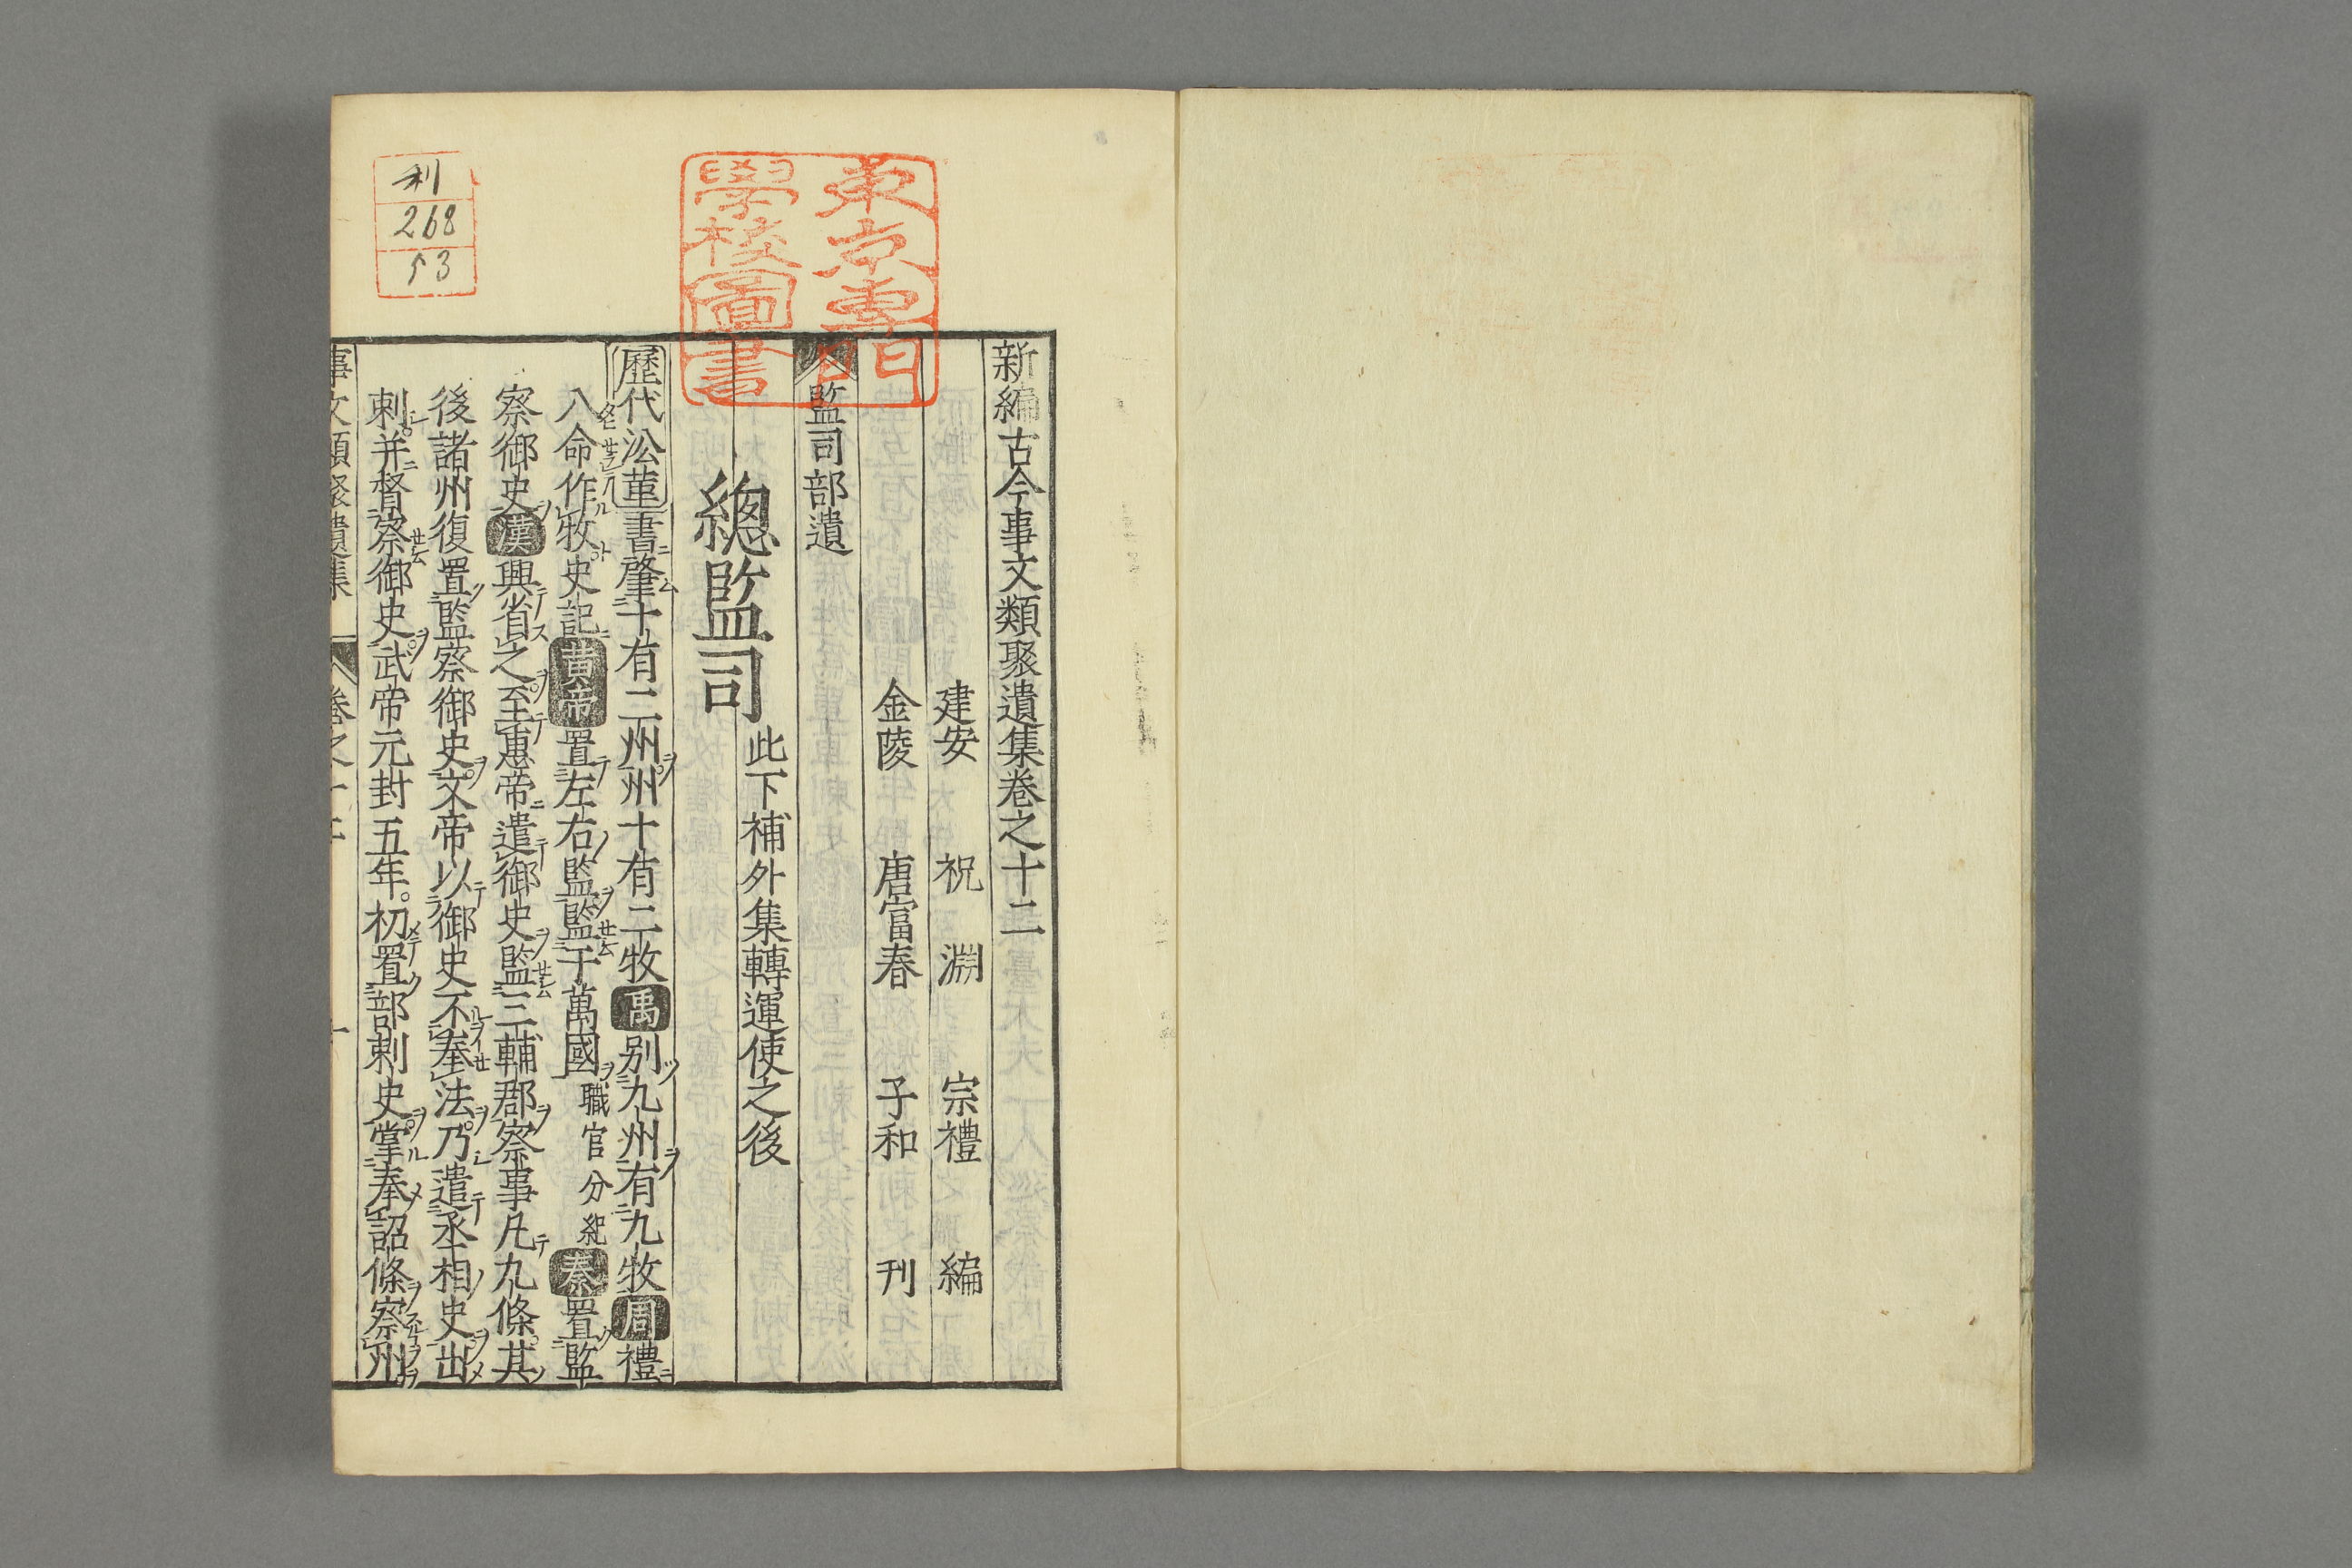 新編古今事文類聚遺集卷之十二
建安 祝 淵 宗禮 編
金陵 唐富春 子和 刊
監司部遺
總監司
此下補外集轉運使之後
歷代㳂革書肇十有二州州十有二牧禹別九州有九牧周禮
八命作牧史記黃帝置左右監監于萬國職官分紀秦置監
察御史漢興省之至惠帝遣御史監三輔郡察事凡九條其
後諸州復置監察御史文帝以御史不奉法乃遣丞相史出
刺并督察御史武帝元封五年初置部刺史掌奉詔條察州
東京書籍
學校圖書
利
268
53